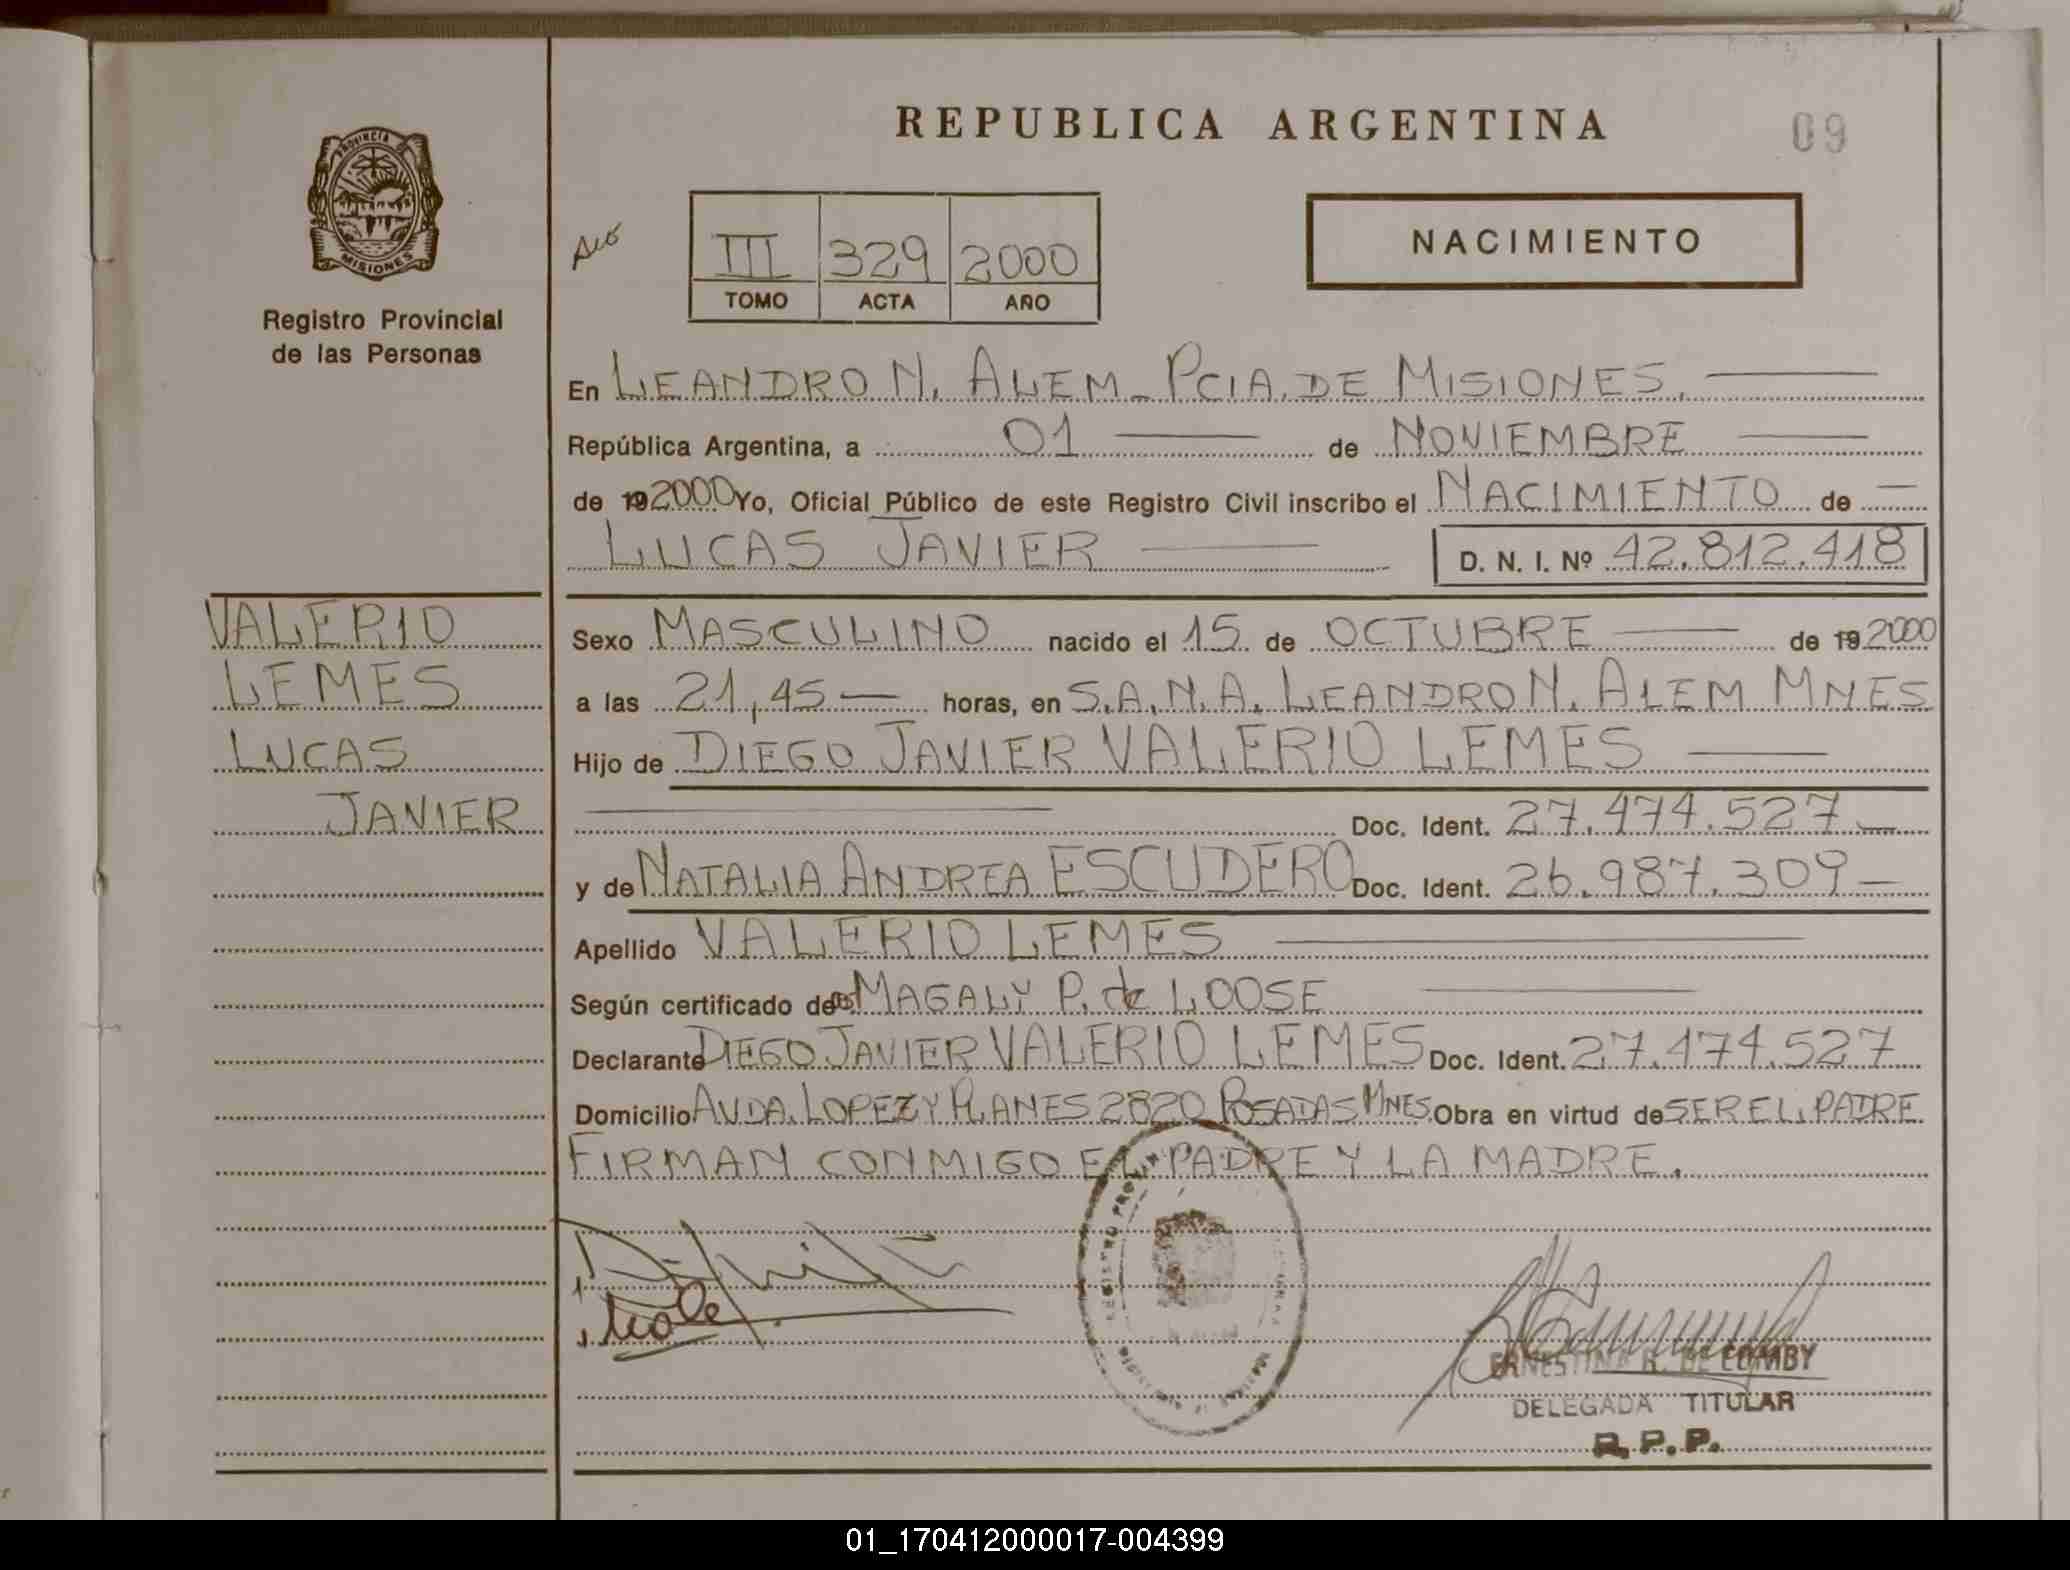 REPUBLICA ARGENTINA
09
PROVINCIA DE
MISIONES
Registro Provincial
de las Personas
III 329 2000
TOMO ACTA AÑO
NACIMIENTO
En LEANDRO N. ALEM - PCIA. DE MISIONES.
República Argentina, a 01 de NOVIEMBRE
de 19 2000 Yo, Oficial Público de este Registro Civil inscribo el NACIMIENTO de
LUCAS JAVIER D. N. I. Nº 42.812.418
VALERIO
LEMES
LUCAS
JAVIER
Sexo MASCULINO nacido el 15 de OCTUBRE de 19 2000
a las 21,45 horas, en S.A.N.A. LEANDRO N. ALEM MNES
Hijo de DIEGO JAVIER VALERIO LEMES
Doc. Ident. 27.474.527
y de NATALIA ANDREA ESCUDERO Doc. Ident. 26.987.309
Apellido VALERIO LEMES
Según certificado de MAGALY P. de LOOSE
Declarante DIEGO JAVIER VALERIO LEMES Doc. Ident. 27.474.527
Domicilio AVDA. LOPEZ Y PLANES 2820 POSADAS MNES. Obra en virtud de SER EL PADRE
FIRMAN CONMIGO EL PADRE Y LA MADRE.
ERNESTINA R. DE COMBY
DELEGADA TITULAR
R.P.P.
01_170412000017-004399